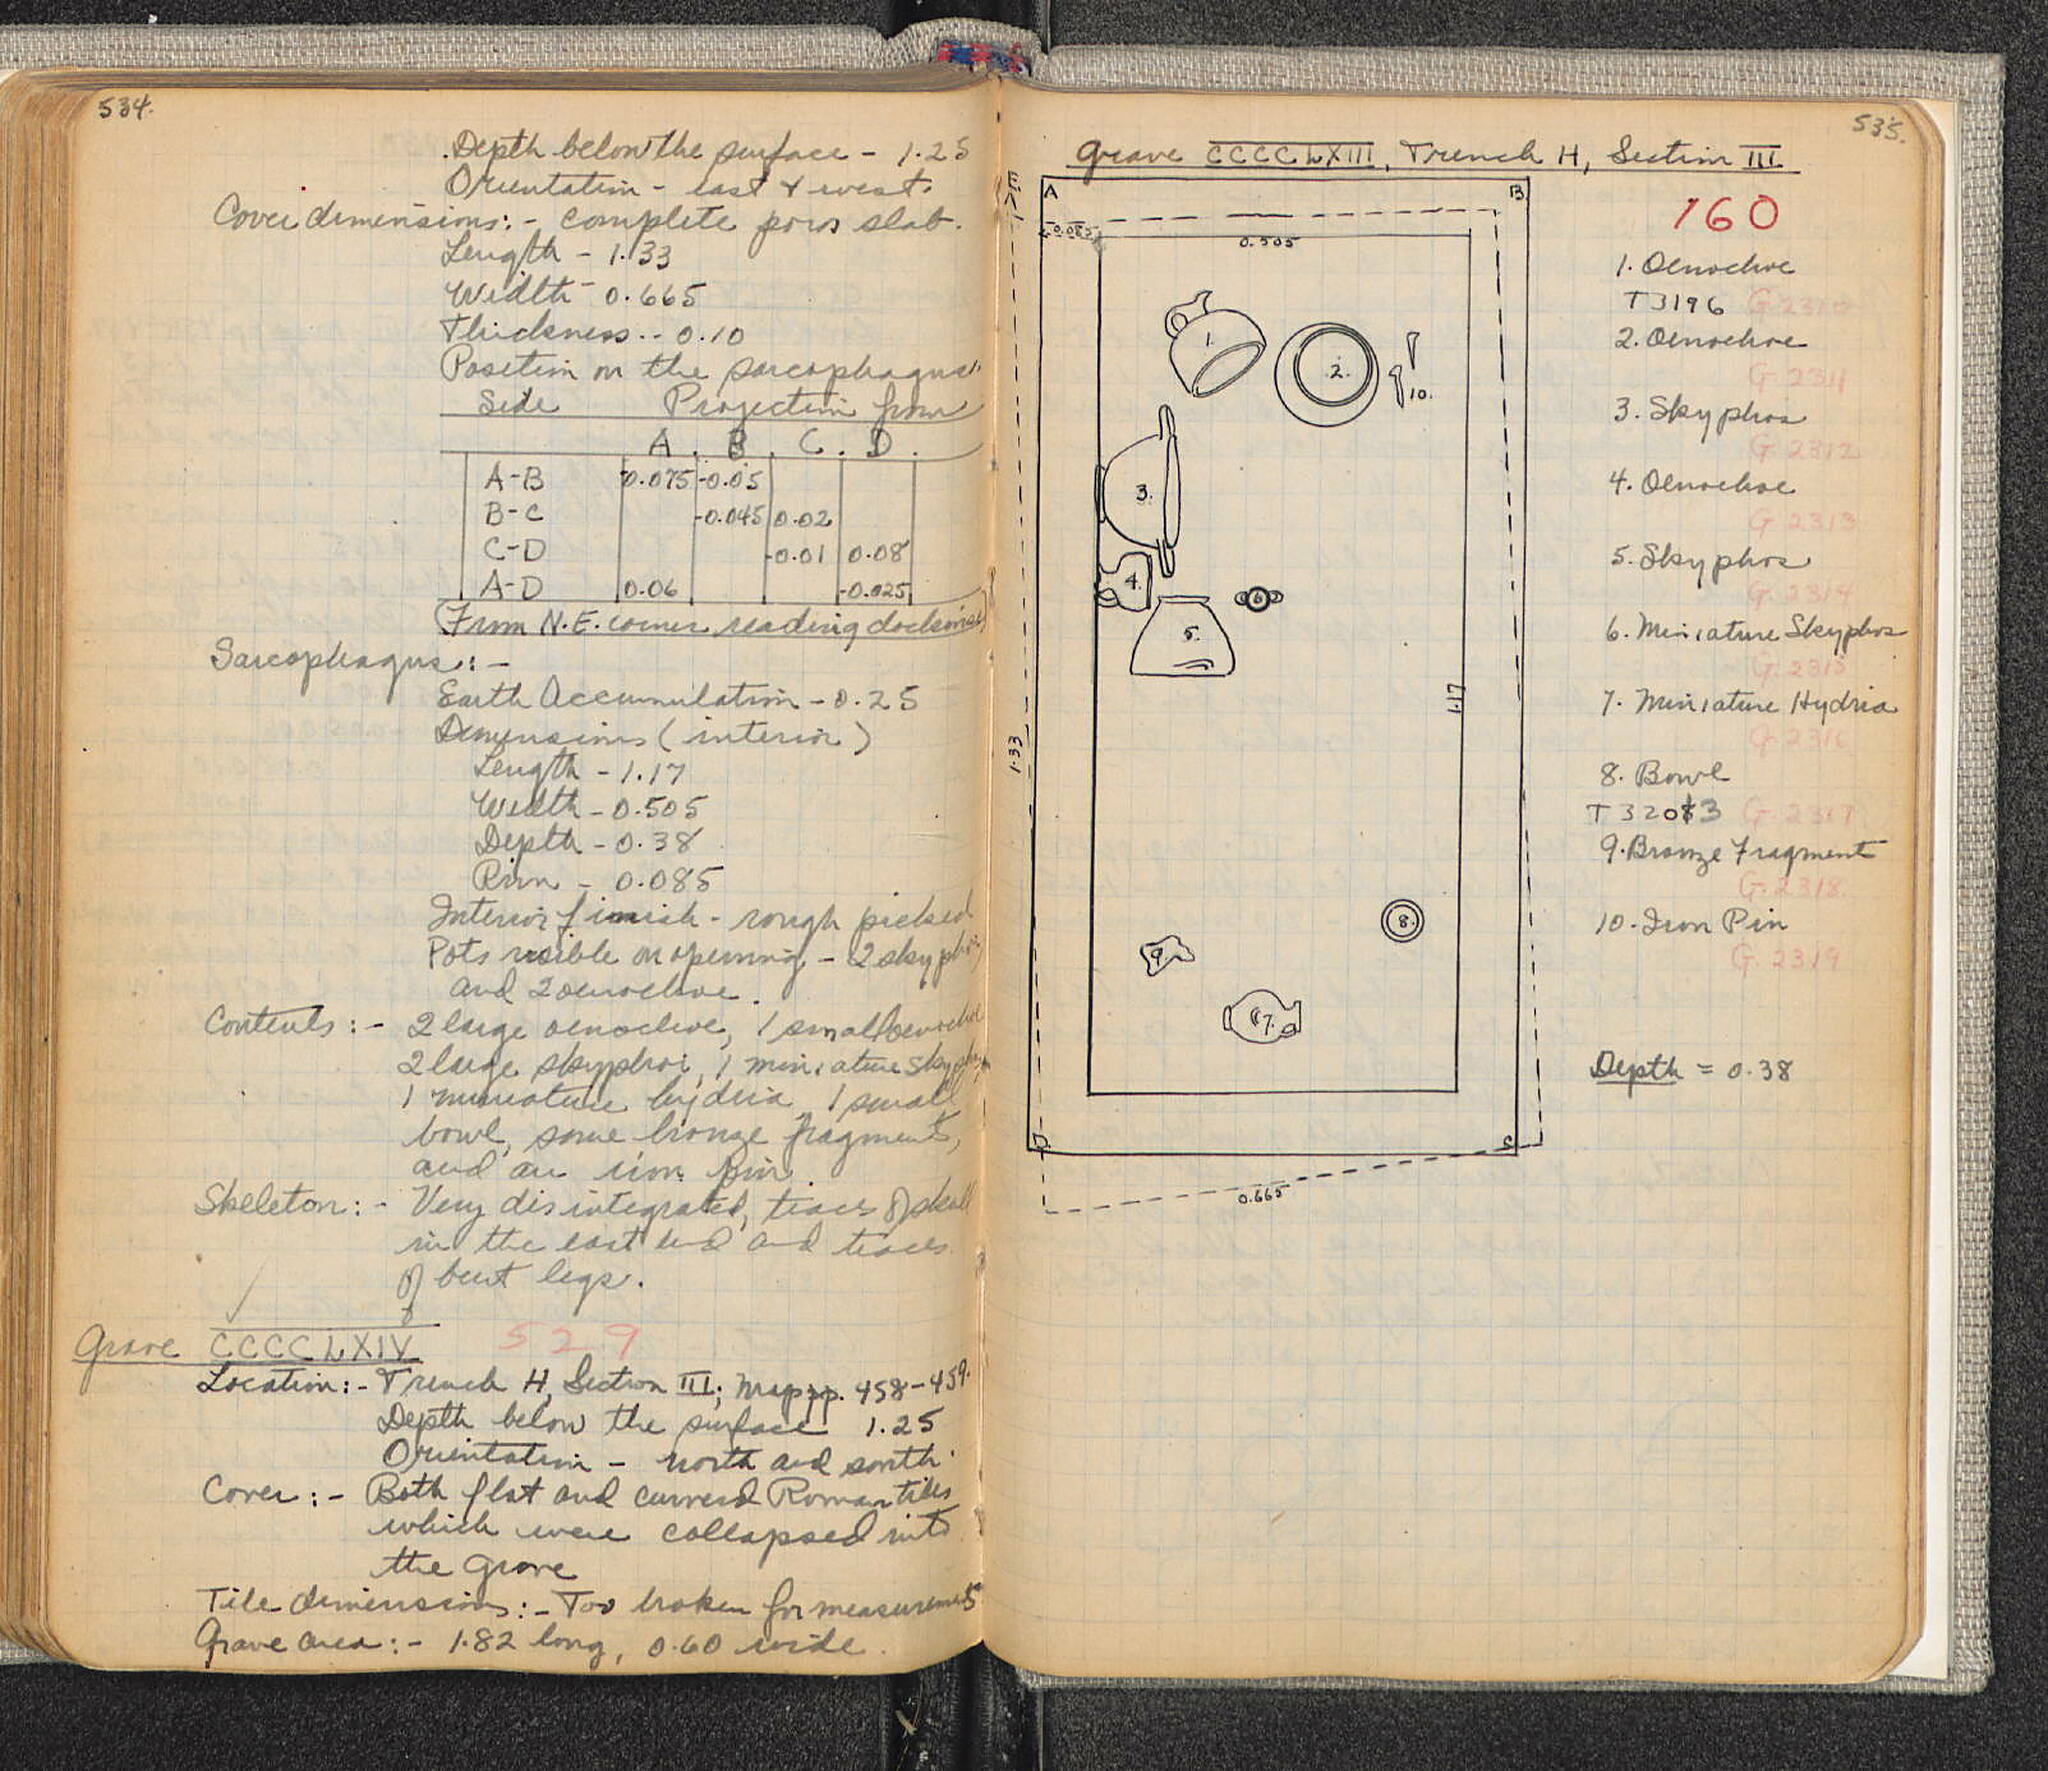 534.
Depth below the surface - 1.25
Orientation - east & west.
Cover dimensions: - complete poros slab.
Length - 1.33
Width - 0.665
Thickness - - 0.10
Position on the sarcophagus.
Side Projection from
A. B. C. D.
A-B -0.075 -0.05
B-C -0.045 0.02
C-D -0.01 0.08
A-D 0.06 -0.025
(From N.E. corner reading clockwise)
Sarcophagus: -
Earth Accumulation - 0.25
Dimensions (interior)
Length - 1.17
Width - 0.505
Depth - 0.38
Rim - 0.085
Interior finish - rough picked
Pots visible on opening - 2 skyphoi,
and 2 oenochoe.
Contents: - 2 large oenochoe, 1 small oenochoe
2 large skyphoi, 1 miniature skyphos,
1 miniature hydria, 1 small
bowl, some bronze fragments,
and an iron pin.
Skeleton: - Very disintegrated, traces of skull
in the east end and traces
of bent legs.
Grave CCCCLXIV 529
Location: - Trench H, Section III; Map pp. 458-459.
Depth below the surface 1.25
Orientation - north and south.
Cover: - Both flat and curved Roman tiles
which were collapsed into
the grave
Tile dimensions: - Too broken for measurements
Grave area: - 1.82 long, 0.60 wide.
535.
Grave CCCCLXIII, Trench H, Section III
160
E.
A
B
0.085
0.505
1.
2.
10.
3.
4.
5.
6
1.17
1.33
8.
9.
7.
D
C
0.665
1. Oenochoe
T3196 G. 2310
2. Oenochoe
G. 2311
3. Skyphos
G. 2312
4. Oenochoe
G. 2313
5. Skyphos
G. 2314
6. Miniature Skyphos
G. 2315
7. Miniature Hydria
G. 2316
8. Bowl
T 3203 G. 2317
9. Bronze Fragment
G. 2318.
10. Iron Pin
G. 2319
Depth = 0.38